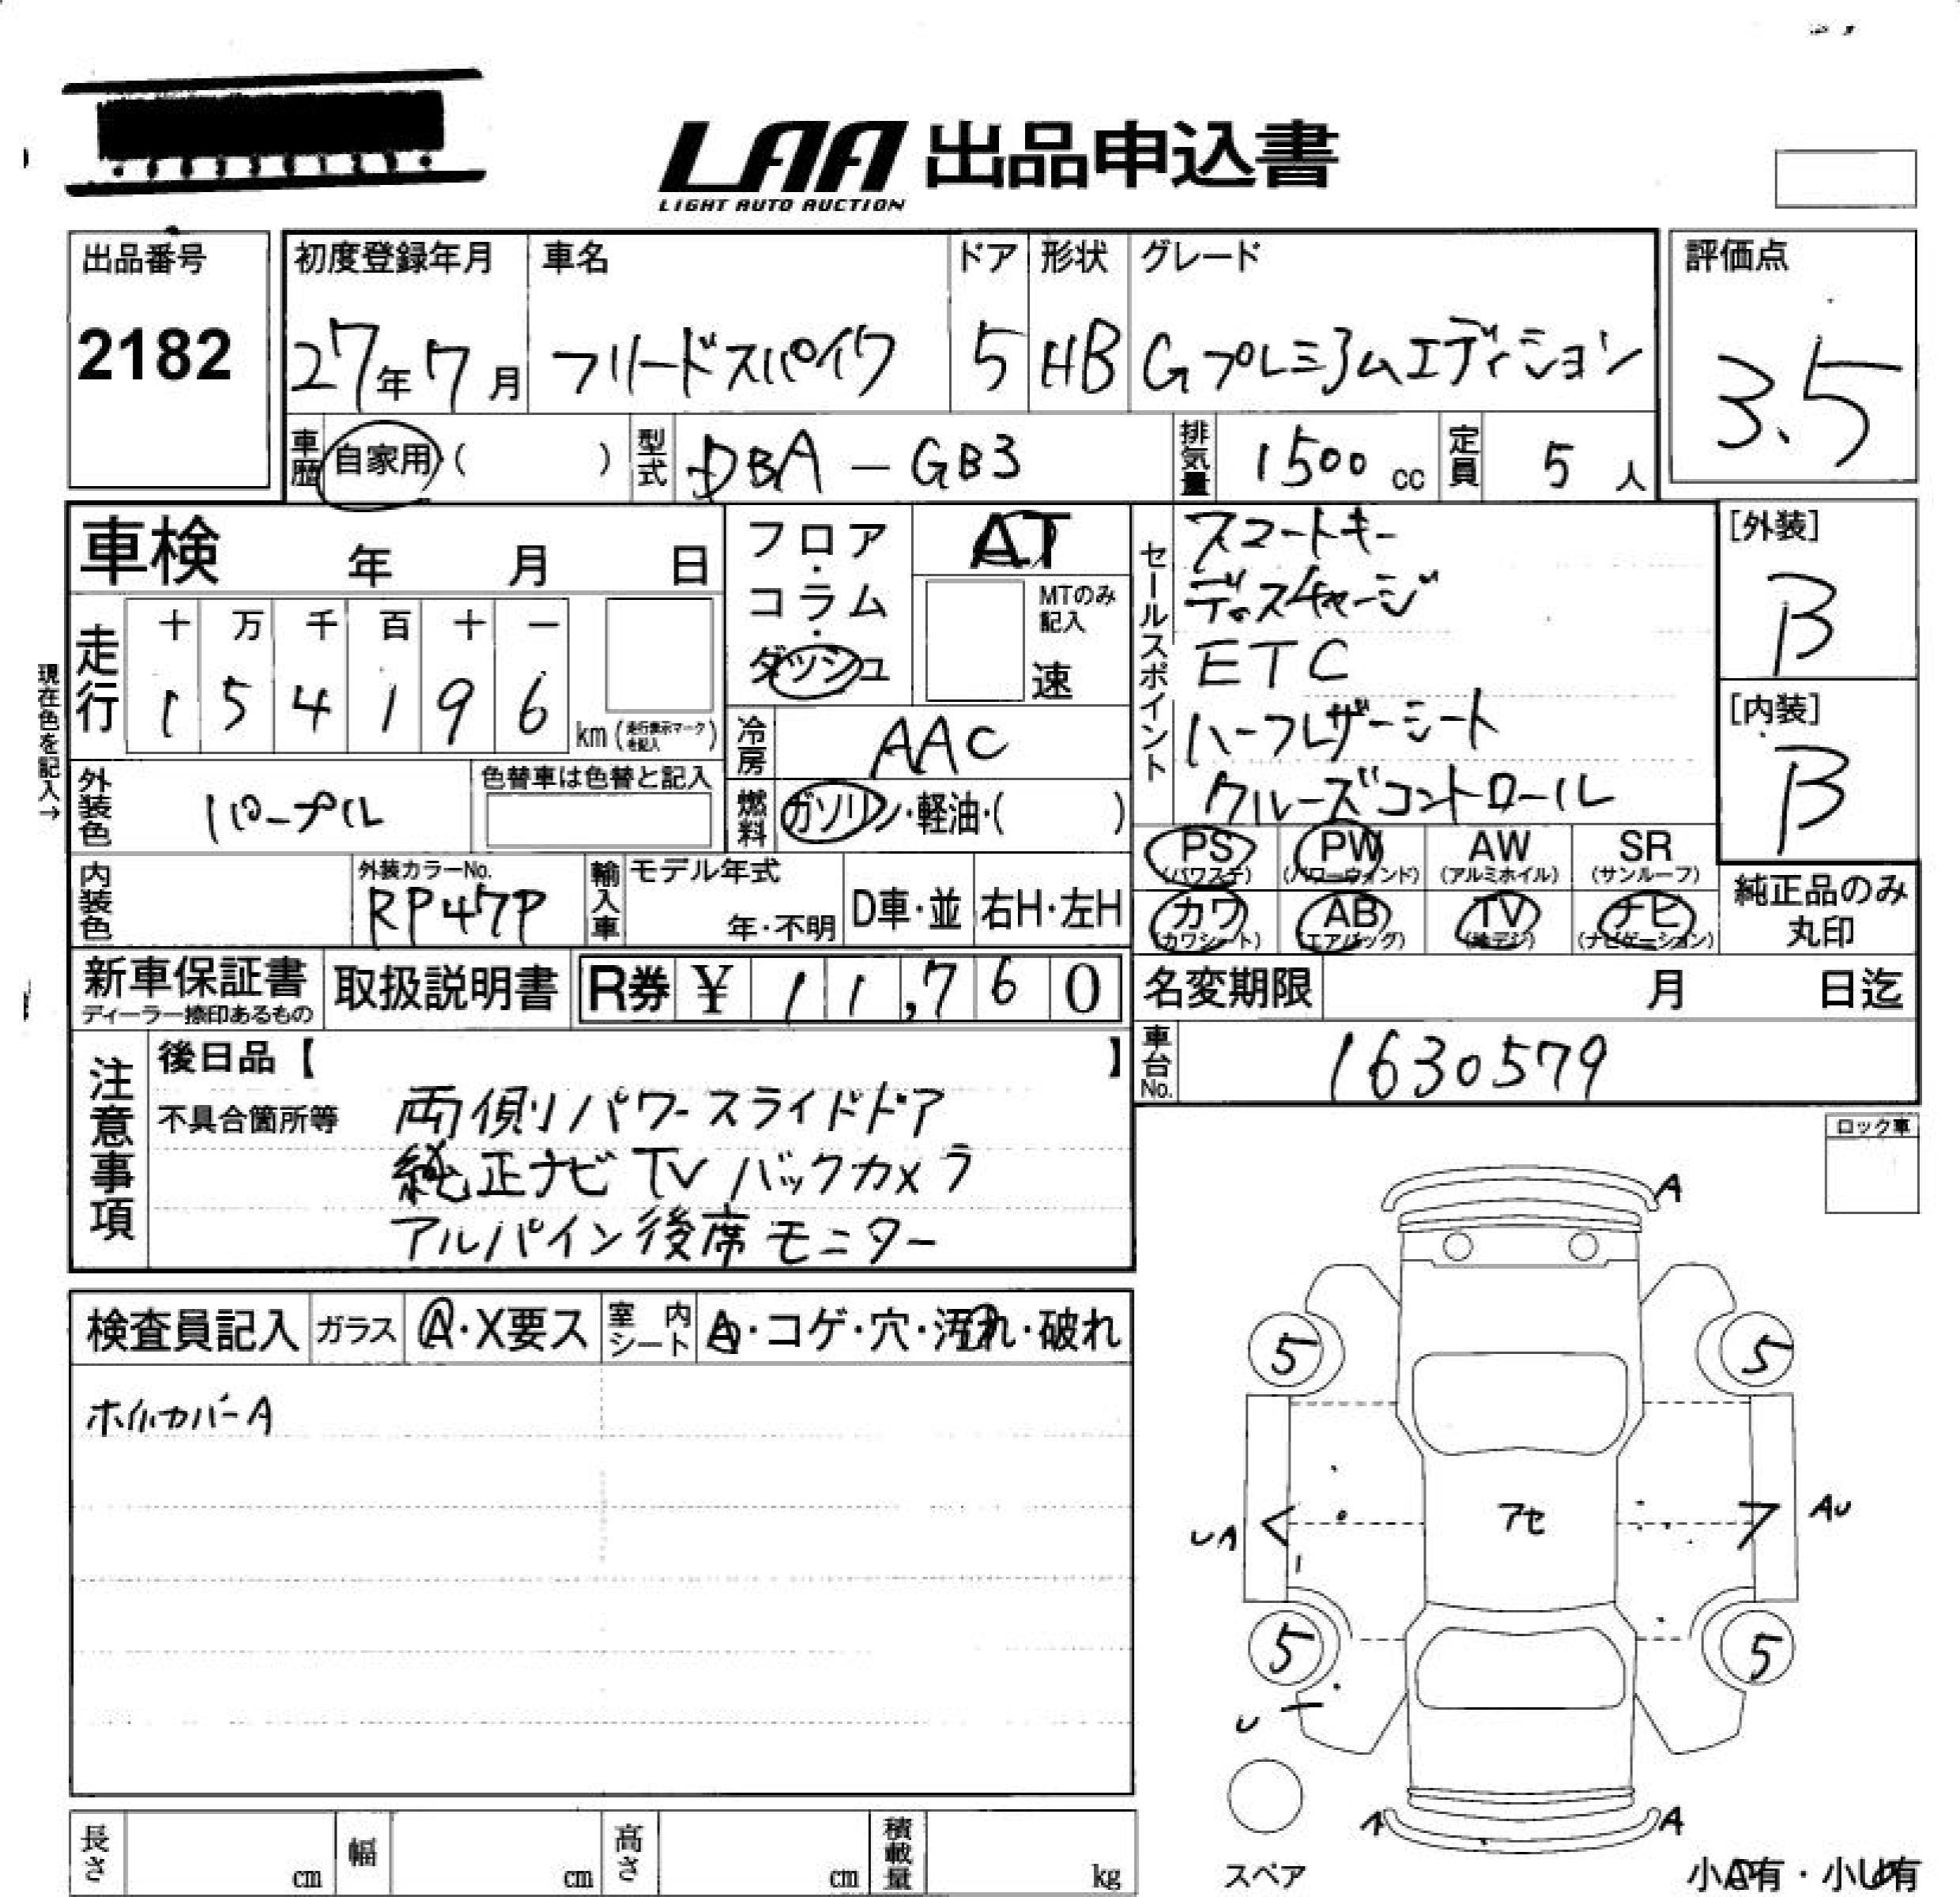 LAA 出品申込書
LIGHT AUTO AUCTION
出品番号
2182
初度登録年月
27年7月
車名
フリードスパイク
ドア
5
形状
HB
グレード
Gプレミアムエディション
評価点
3.5
車歴 自家用 ( )
型式 DBA-GB3
排気量 1500 cc
定員 5 人
車検 年 月 日
フロア・コラム・ダッシュ
AT
MTのみ記入
速
セールスポイント
スマートキー
ディスチャージ
ETC
ハーフレザーシート
クルーズコントロール
[外装]
B
[内装]
B
現在色を記入→
走行
十 万 千 百 十 一
1 5 4 1 9 6 km (走行表示マークを記入)
冷房 AAC
外装色 パープル
色替車は色替と記入
燃料 ガソリン・軽油・( )
PS (パワステ)
PW (パワーウィンド)
AW (アルミホイル)
SR (サンルーフ)
カワ (カワシート)
AB (エアバッグ)
TV (地デジ)
ナビ (ナビゲーション)
純正品のみ丸印
内装色
外装カラーNo.
RP47P
輸入車
モデル年式
年・不明
D車・並
右H・左H
新車保証書
ディーラー捺印あるもの
取扱説明書
R券 ¥ 11,760
名変期限 月 日迄
車台No. 1630579
注意事項
後日品【 】
不具合箇所等
両側パワースライドドア
純正ナビ TV バックカメラ
アルパイン後席モニター
ロック車
検査員記入
ガラス A・X要ス
室内シート A・コゲ・穴・汚れ・破れ
ホイルカバーA
A
5 5
UA アセ AU
5 5
U
A A
スペア
小A有・小U有
長さ cm
幅 cm
高さ cm
積載量 kg